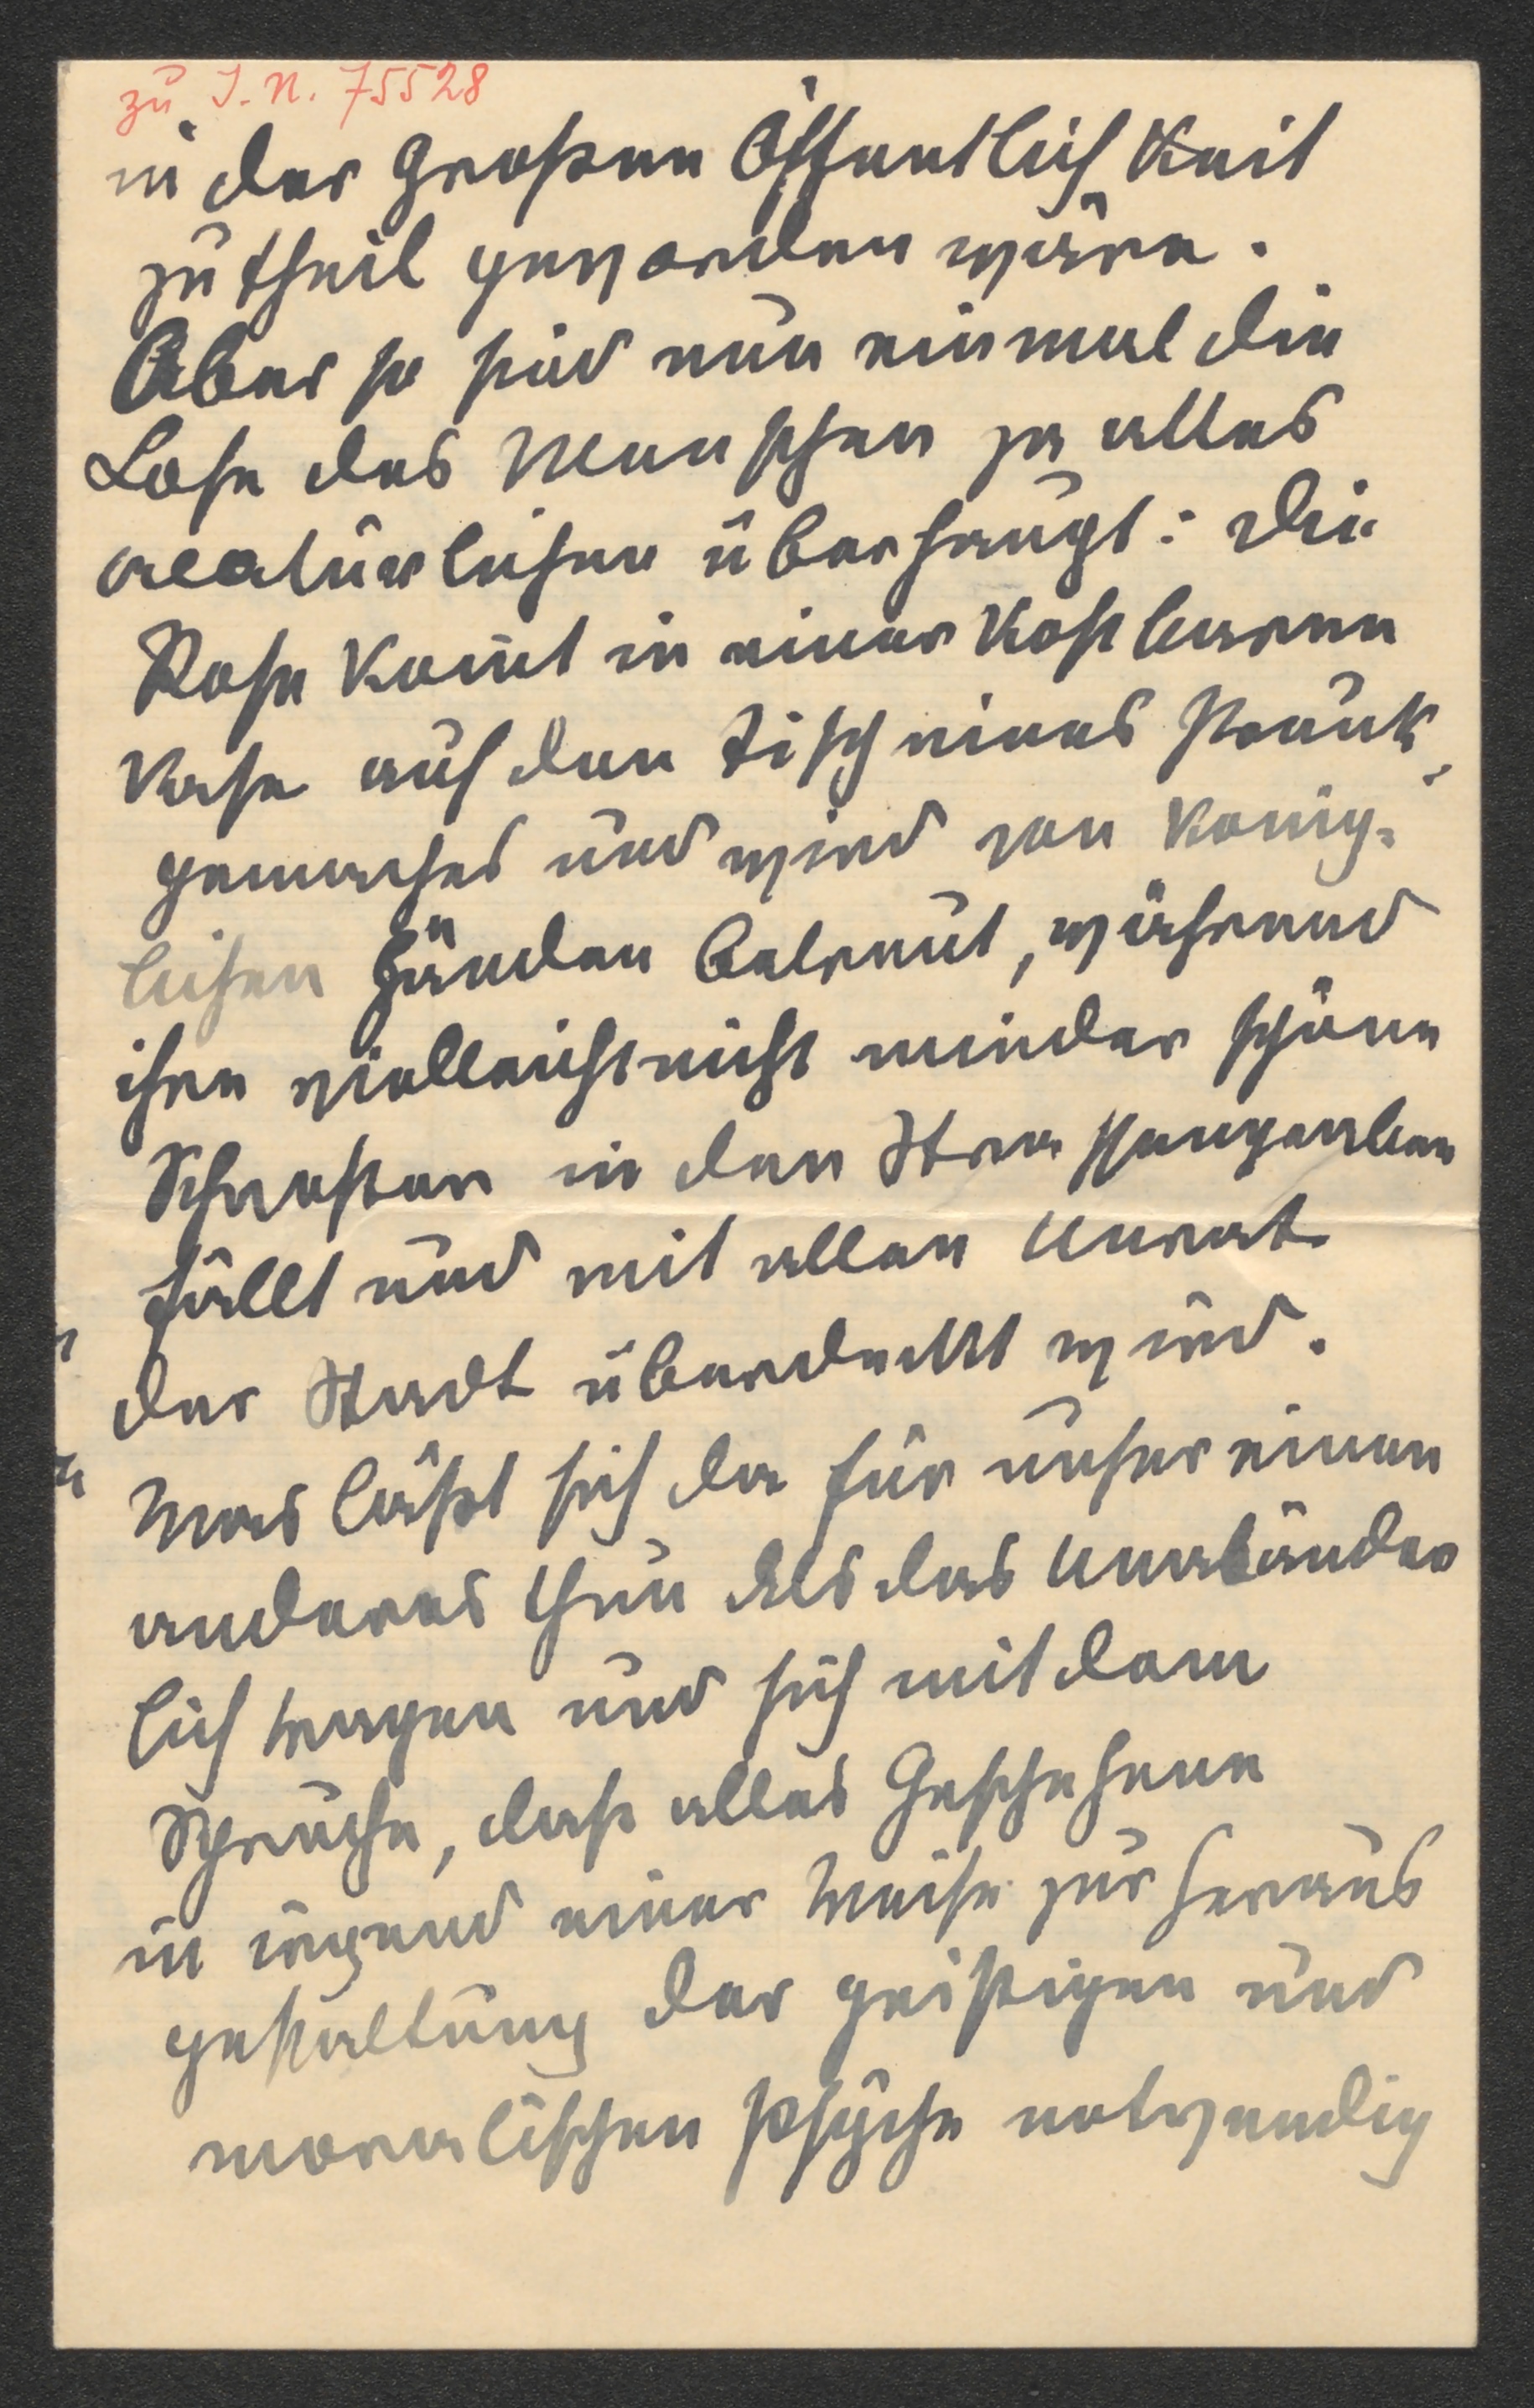 zu I. N. 75528
in der großen Öffentlichkeit
zutheil geworden wäre.
Aber so sind nun einmal die
Lose des Menschen ja alles
creatürlichen überhaupt: Die
Rose kom̄t in einer kostbaren
Vase auf den Tisch eines Prunk-
gemaches und wird von könig-
lichen Händen betreut, während
ihre vielleicht nicht minder schöne
Schwester in den Strassengraben
fällt und mit allen Unrat
der Stadt überdeckt wird.
Was läßt sich da für unser einen
anderes thun als das Unabänder
lich tragen und sich mit dem
Spruche, daß alles Geschehene
in irgend einer Weise zur Heraus
gestaltung der geistigen und
moralischen Psÿche notwendig